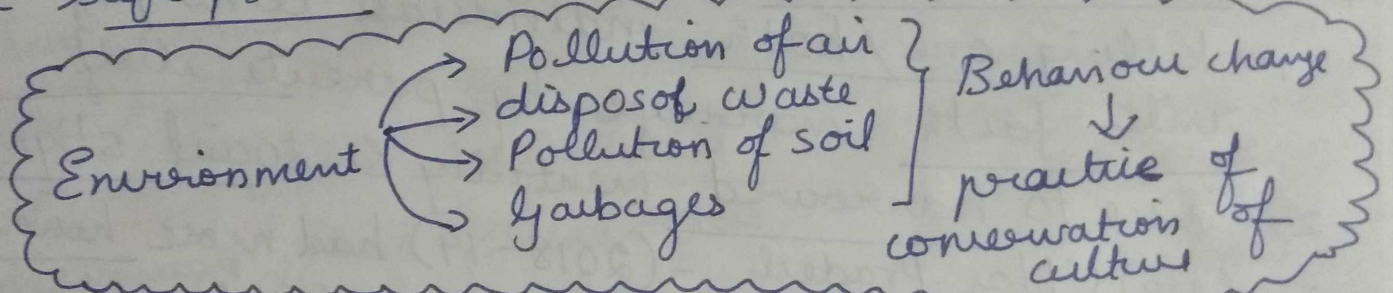 Environment
Pollution of air
disposof waste
Pollution of soil
Garbages
Behaviour change
practice of
conservation of
culture